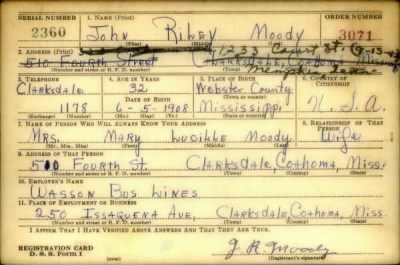 SERIAL NUMBER 1. NAME (Print) ORDER NUMBER
2360 John Riley Moody 3071
(First) (Middle) (Last)
1233 Court St. 9-15-43
2. ADDRESS (Print) Memphis, Tenn.
510 Fourth Street Clarksdale, Coahoma, Miss
(Number and street or R. F. D. number) (Town) (County) (State)
3. TELEPHONE 4. AGE IN YEARS 5. PLACE OF BIRTH 6. COUNTRY OF CITIZENSHIP
Clarksdale 32 Webster County
DATE OF BIRTH
1178 6-5-1908 Mississippi U.S.A.
(Exchange) (Number) (Mo.) (Day) (Yr.) (State or country)
7. NAME OF PERSON WHO WILL ALWAYS KNOW YOUR ADDRESS 8. RELATIONSHIP OF THAT PERSON
Mrs. Mary Lucille Moody Wife
(Mr., Mrs., Miss) (First) (Middle) (Last)
9. ADDRESS OF THAT PERSON
510 Fourth St. Clarksdale, Coahoma, Miss.
(Number and street or R. F. D. number) (Town) (County) (State)
10. EMPLOYER'S NAME
Wasson Bus Lines
11. PLACE OF EMPLOYMENT OR BUSINESS
250 Issaquena Ave, Clarksdale, Coahoma, Miss.
(Number and street or R. F. D. number) (Town) (County) (State)
I AFFIRM THAT I HAVE VERIFIED ABOVE ANSWERS AND THAT THEY ARE TRUE.
REGISTRATION CARD J. R. Moody
D. S. S. Form 1 (Registrant's signature)